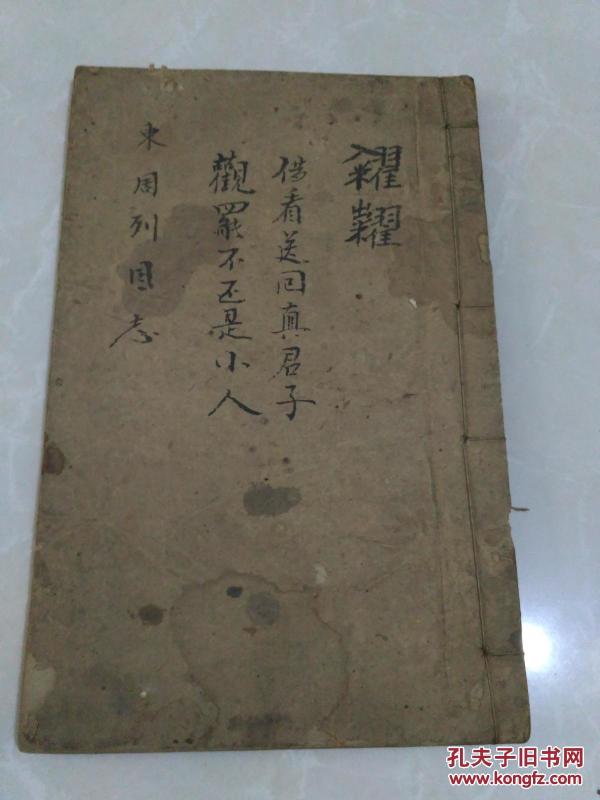 糴糶
借看送回真君子
觀罷不还是小人
東周列国志
孔夫子旧书网
www.kongfz.com